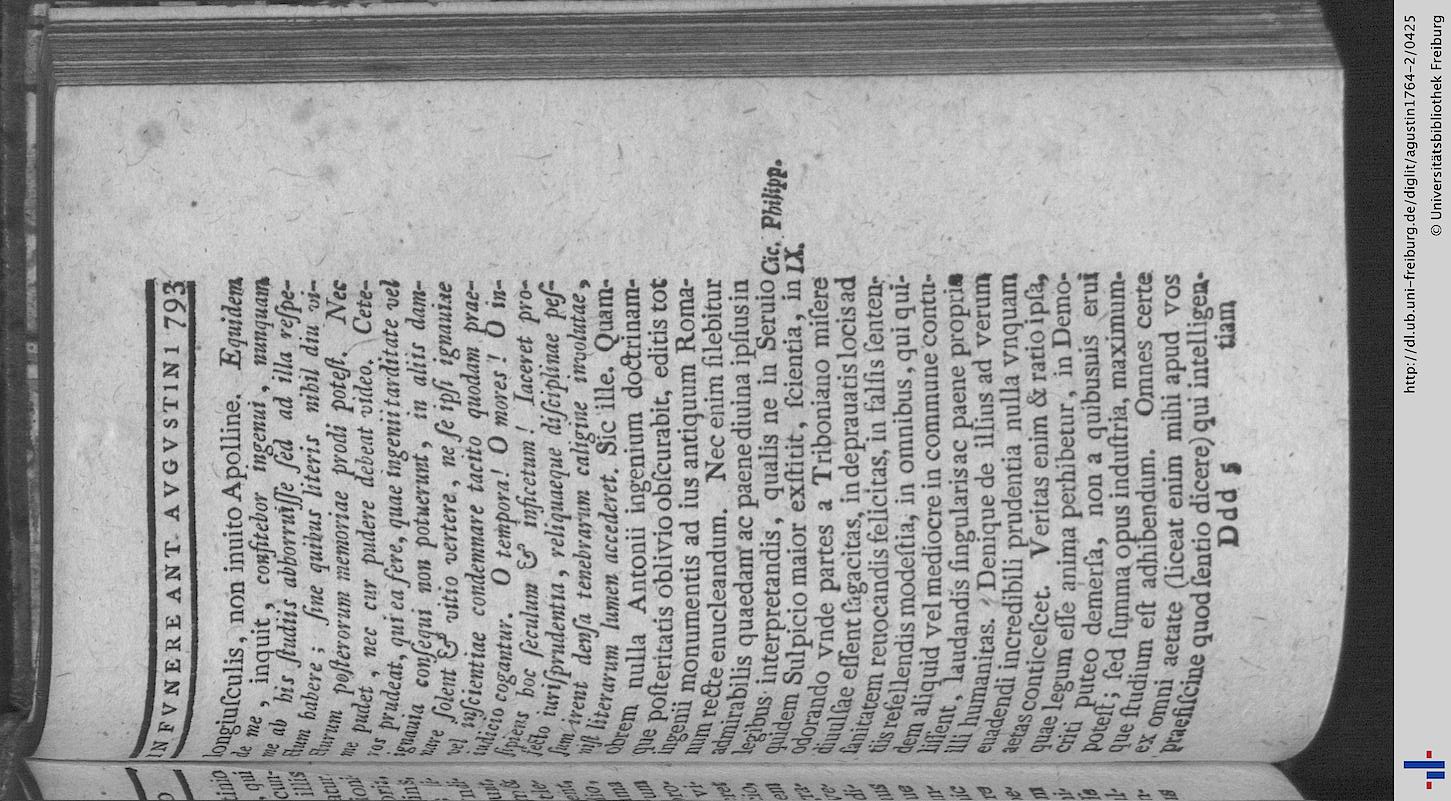 IN FVNERE ANT. AVGVSTINI 793
longiuſculis, non inuito Apolline. Equidem
de me, inquit, confitebor ingenui, nunquam
me ab his ſtudiis abhorruiſſe ſed ad illa reſpe-
ctum habere; ſine quibus literis nihil diu vi-
cturum poſterorum memoriae prodi poteſt. Nec
me pudet, nec cur pudere debeat video. Cete-
ros prudeat, qui ea fere, quae ingenii tarditate vel
ignauia conſequi non potuerunt, in aliis dam-
nare ſolent & vitio vertere, ne ſe ipſi ignauiae
vel inſcientiae condemnare tacito quodam prae-
iudicio cogantur. O tempora! O mores! O in-
ſipiens hoc ſeculum & inficetum! Iaceret pro-
fecto iuriſprudentia, reliquaeque diſciplinae peſ-
ſum irent denſa tenebrarum caligine inuolutae,
niſi literarum lumen accederet. Sic ille. Quam-
obrem nulla Antonii ingenium doctrinam-
que poſteritatis oblivio obſcurabit, editis tot
ingenii monumentis ad ius antiquum Roma-
num recte enucleandum. Nec enim ſilebitur
admirabilis quaedam ac paene diuina ipſius in
legibus interpretandis, qualis ne in Seruio
quidem Sulpicio maior exſtitit, ſcientia, in
Cic. Philipp.
IX.
odorando vnde partes a Triboniano miſere
diuulſae eſſent ſagacitas, in deprauatis locis ad
ſanitatem reuocandis felicitas, in falſis ſenten-
tiis refellendis modeſtia, in omnibus, qui qui-
dem aliquid vel mediocre in commune contu-
liſſent, laudandis ſingularis ac paene propria
illi humanitas. Denique de illius ad verum
euadendi incredibili prudentia nulla vnquam
aetas conticeſcet. Veritas enim & ratio ipſa,
quae legum eſſe anima perhibetur, in Demo-
criti puteo demerſa, non a quibusuis erui
poteſt; ſed ſumma opus induſtria, maximum-
que ſtudium eſt adhibendum. Omnes certe
ex omni aetate (liceat enim mihi apud vos
praefiſcine quod ſentio dicere) qui intelligen-
Ddd 5 tiam
http://dl.ub.uni-freiburg.de/diglit/agustin1764-2/0425
© Universitätsbibliothek Freiburg